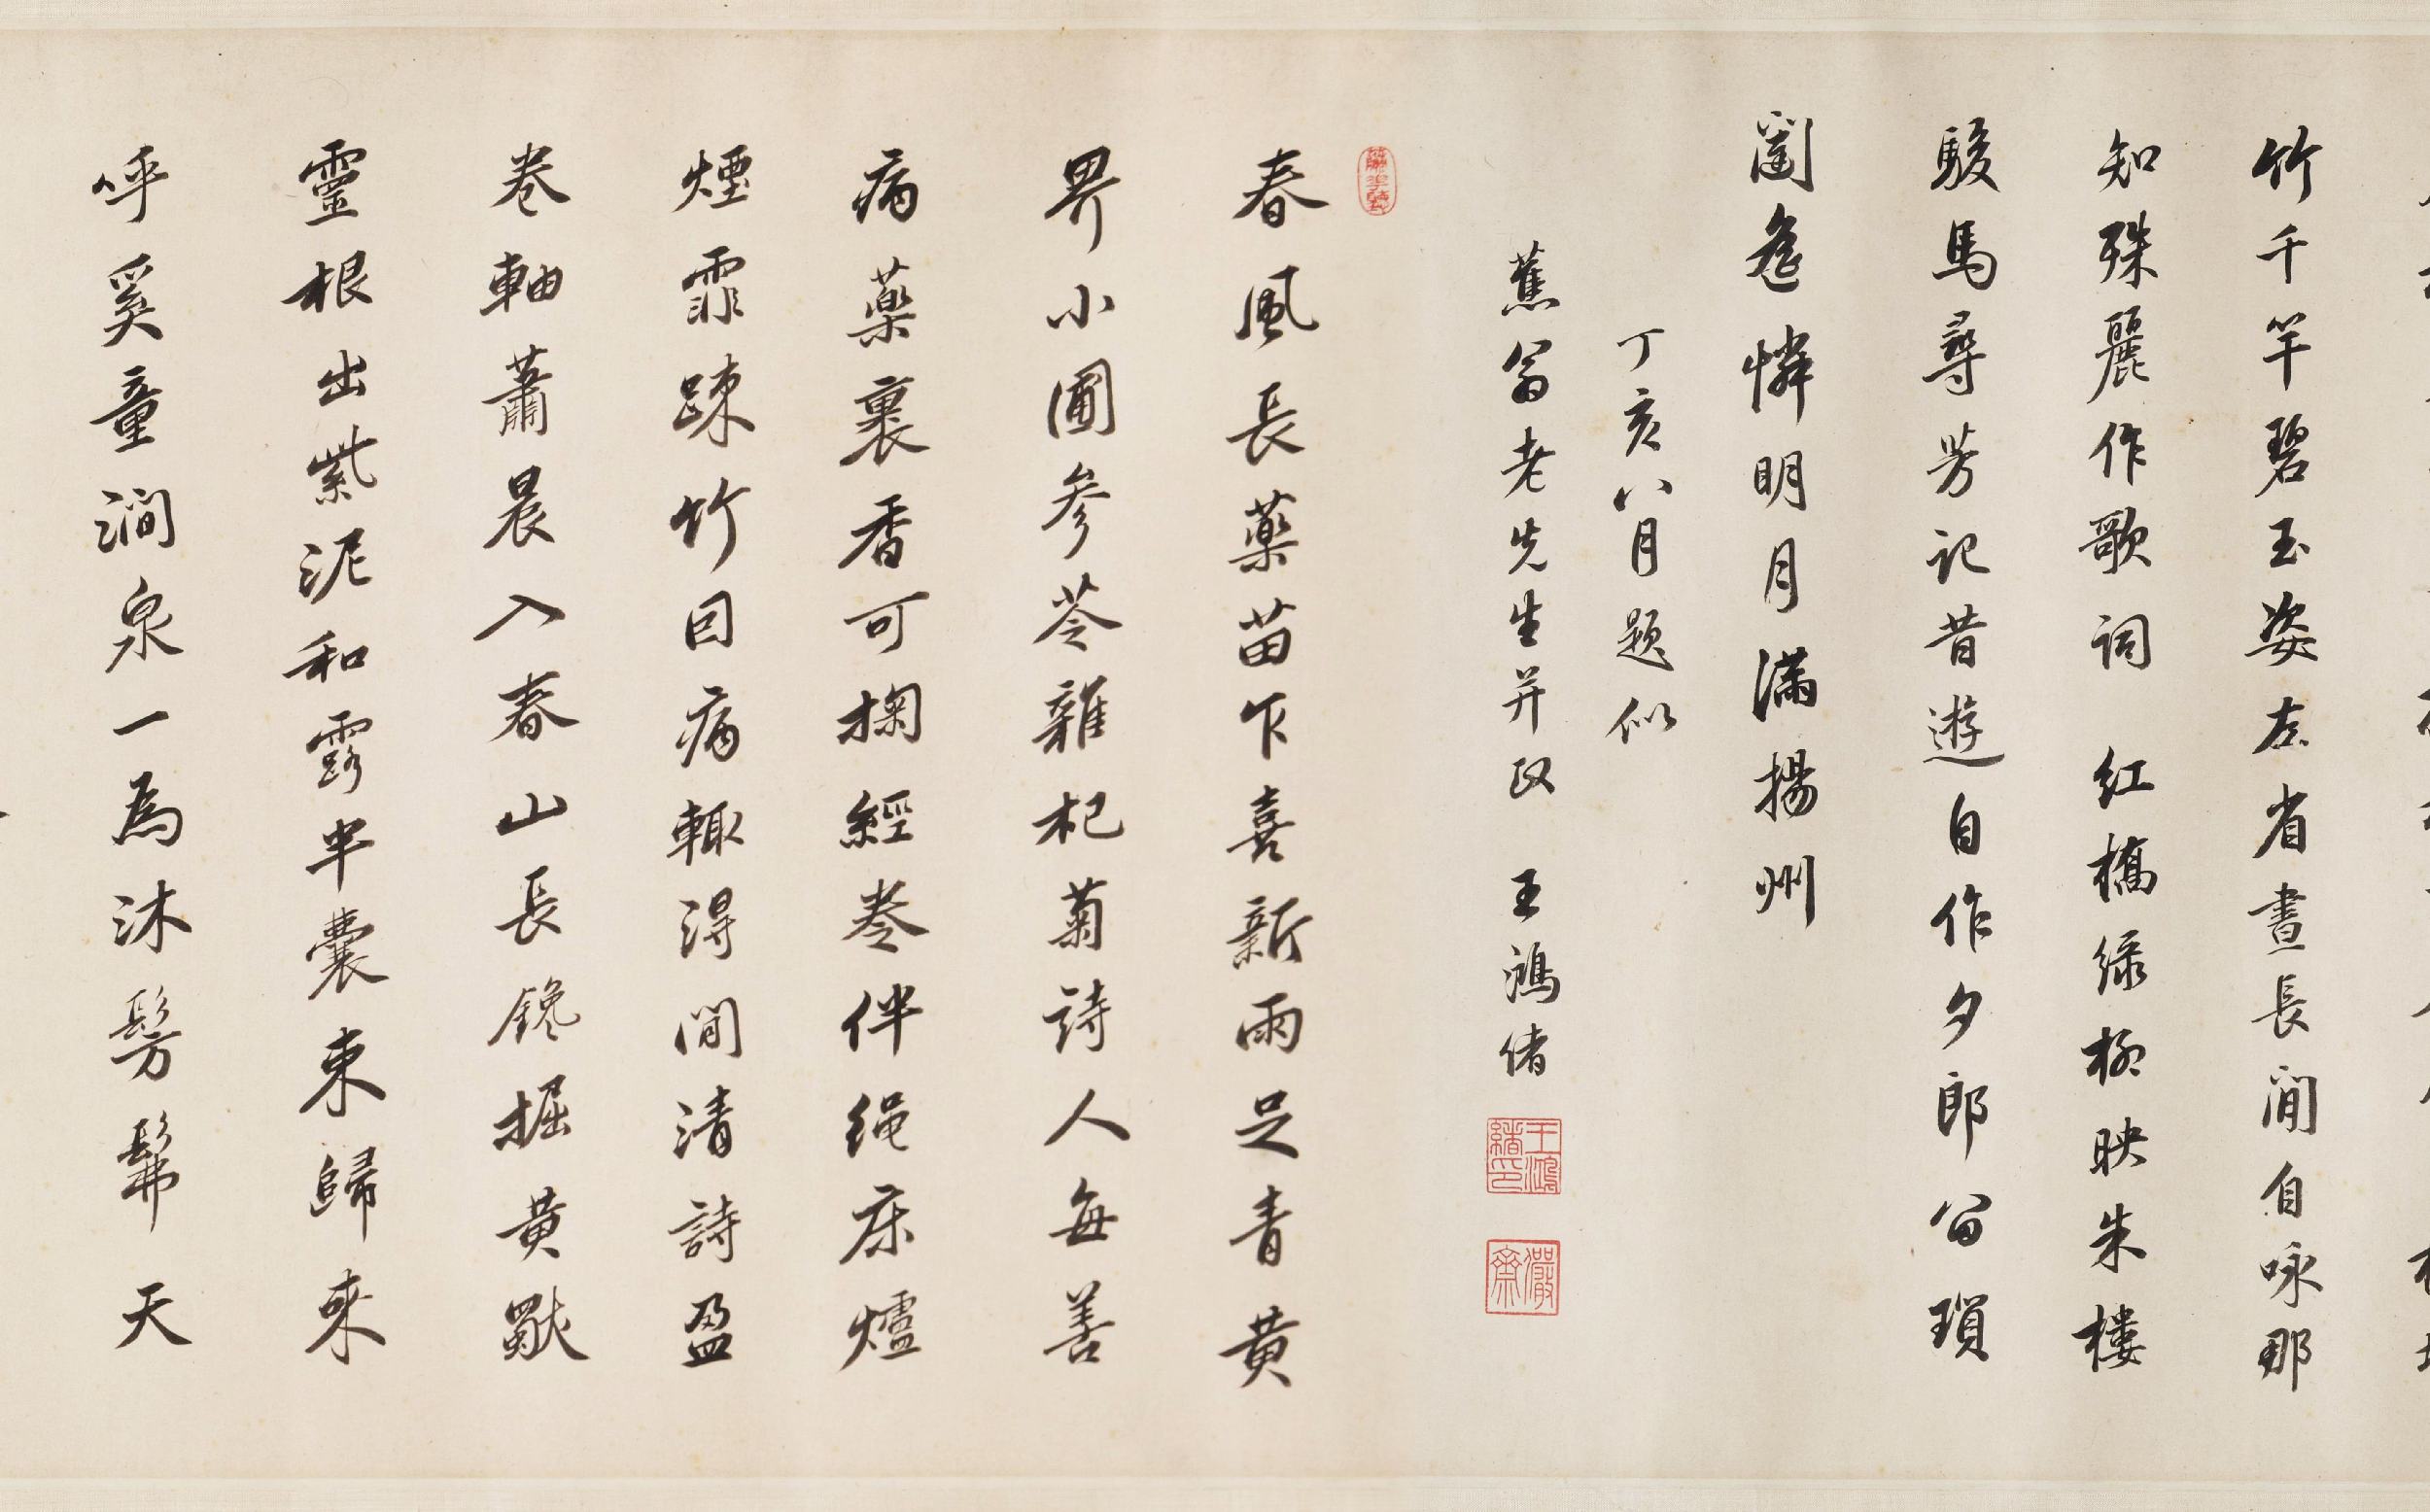 竹千竿碧玉姿左省晝長閒自咏那
知殊麗作歌詞 紅橋綠柳映朱樓
駿馬尋芳記昔遊自作夕郎留瑣
闥危憐明月滿揚州
丁亥八月題似
蕉翁老先生并政 王鴻緒
王鴻緒印
儼齋
春風長藥苗乍喜新雨足青黃
畀小圃參苓雜杞菊詩人每善
病藥裏香可掬經卷伴繩床爐
煙霏疎竹因病輒得閒清詩盈
卷軸蕭晨入春山長鑱掘黃獨
靈根出紫泥和露半囊束歸來
呼奚童澗泉一為沐髣髴天